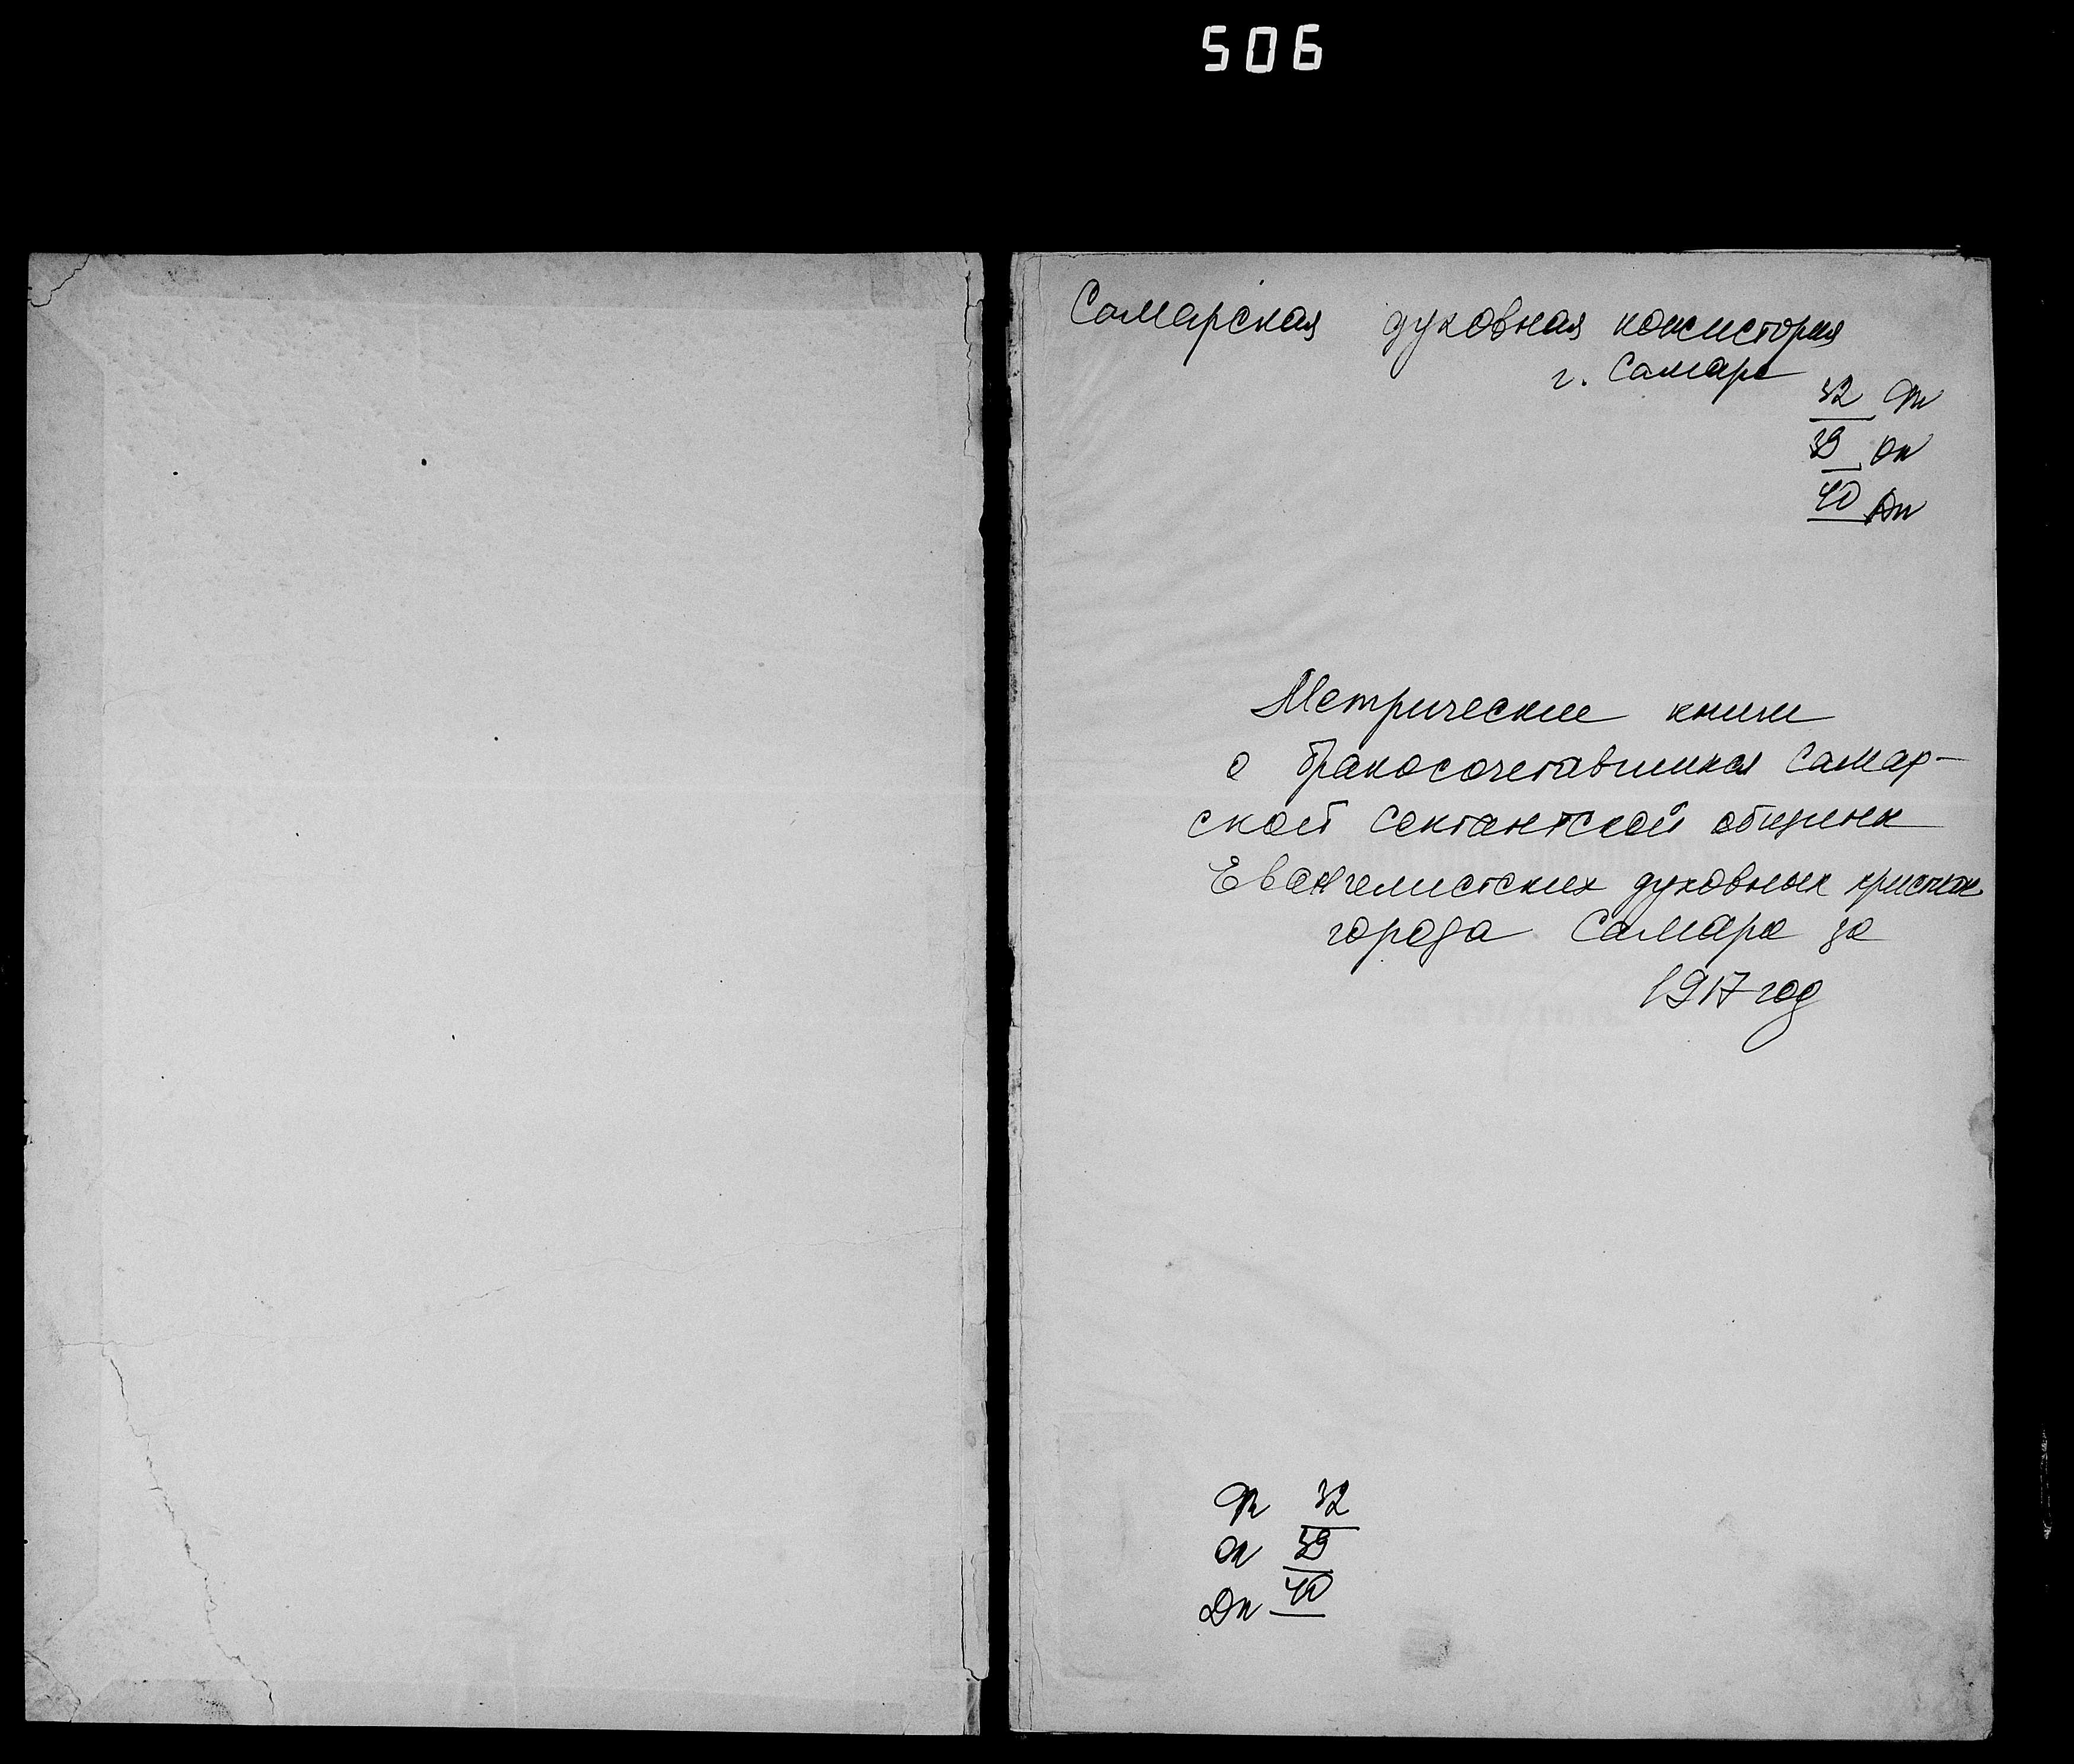 506
Самарская духовная консистория
г. Самара
32 Фн
39 Оп
40 Дп
Метрические книги
о бракосочетавшихся Самар-
ской сектантской общины
Евангелистских духовных христиан
города Самара за
1917 год
Фн 32
Оп 39
Дп 40